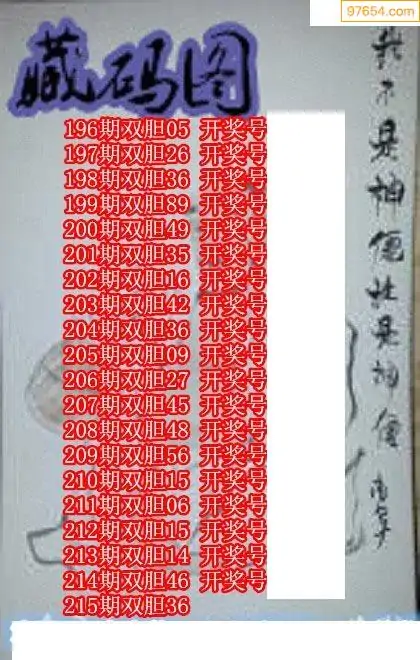 97654.com
藏码图
196期双胆05 开奖号
197期双胆26 开奖号
198期双胆36 开奖号
199期双胆89 开奖号
200期双胆49 开奖号
201期双胆35 开奖号
202期双胆16 开奖号
203期双胆42 开奖号
204期双胆36 开奖号
205期双胆09 开奖号
206期双胆27 开奖号
207期双胆45 开奖号
208期双胆48 开奖号
209期双胆56 开奖号
210期双胆15 开奖号
211期双胆06 开奖号
212期双胆15 开奖号
213期双胆14 开奖号
214期双胆46 开奖号
215期双胆36
我不是神但也是神